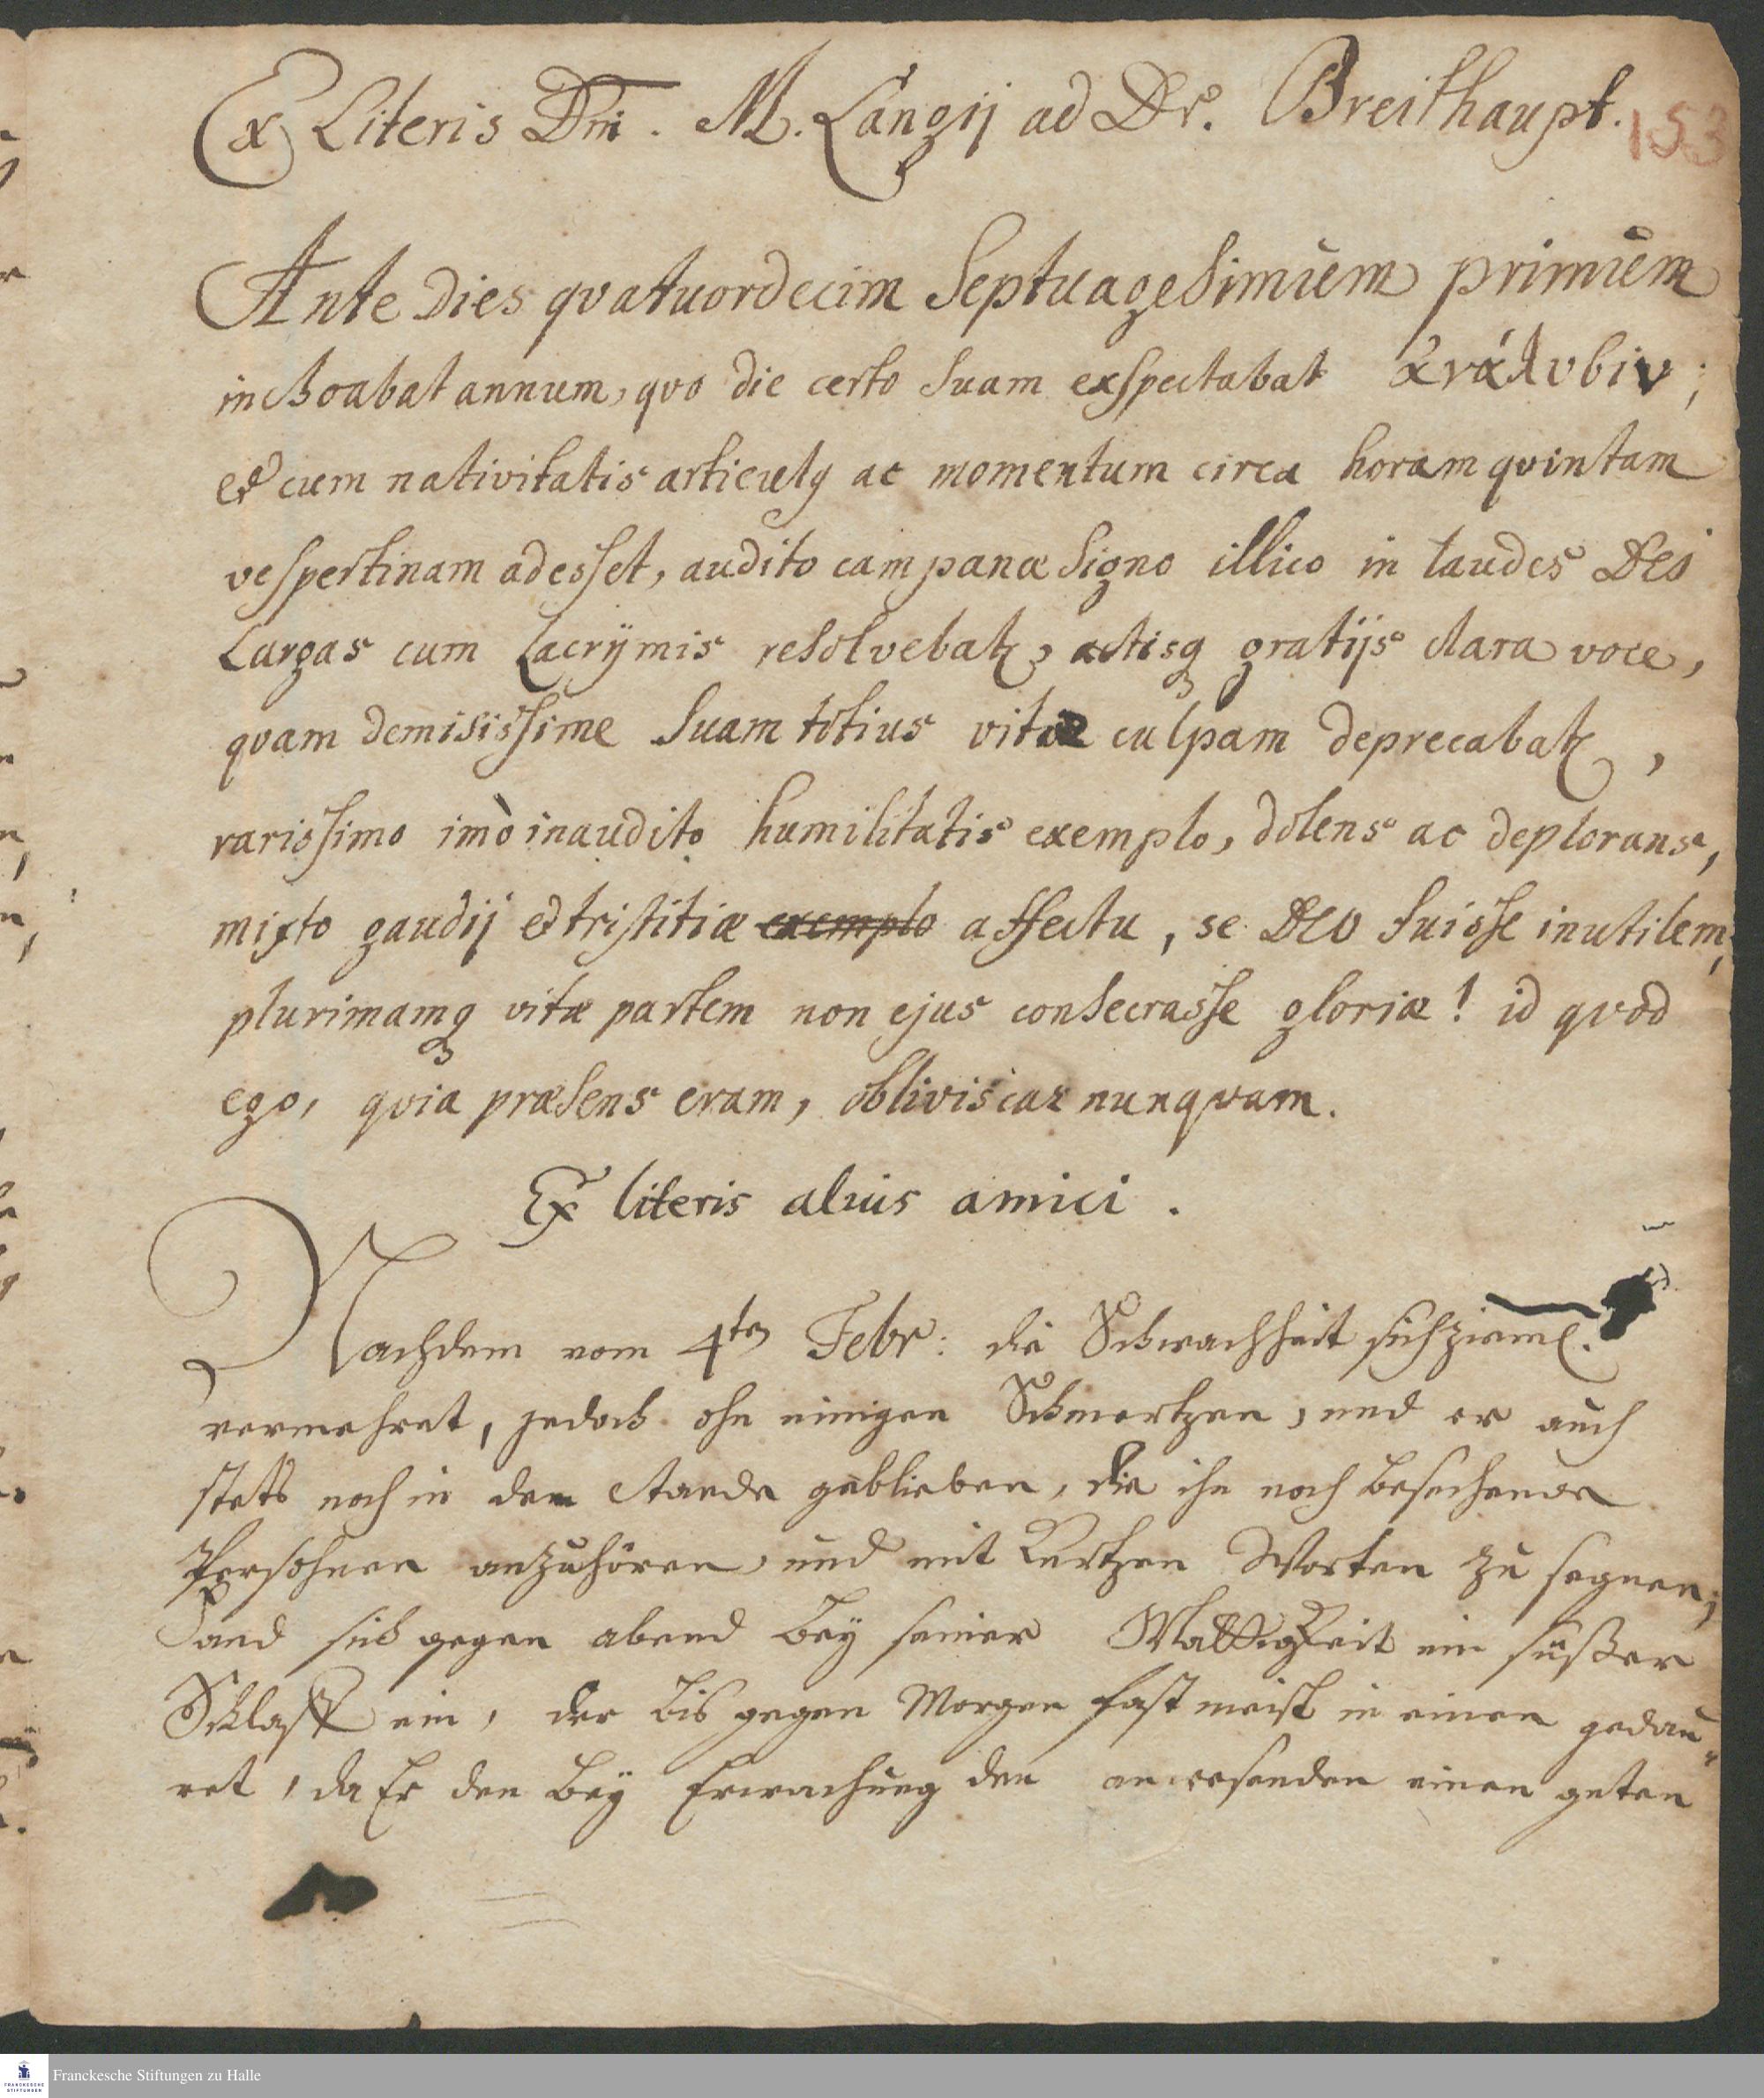 Ex Literis Dni. M. Langij ad Dr. Breithaupt.
153
Ante dies qvatuordecim Septuagesimum primum
inchoabat annum, qvo die certo suam exspectabat ἀνάλυσιν;
et cum nativitatis articulq ac momentum circa horam qvintam
vespertinam adesset, audito campanæ signo illico in laudes DEI
Largas cum Lacrymis resolvebatr, actisq gratijs clara voce,
qvam demisissime suam totius vitæ culpam deprecabatr,
rarissimo imò inaudito humilitatis exemplo, dolens ac deplorans,
mixto gaudij et tristitiæ exemplo affectu, se DEO fuisse inutilem,
plurimamq vitæ partem non ejus consecrasse gloriæ! id qvod
ego, qvia præsens eram, obliviscar nunqvam.
Ex literis alius amici.
Nachdem vom 4ten Febr: die Schwachheit sich zieml.
vermehret, jedoch ohn einigen Schmertzen, und er auch
stets noch in dem Stande geblieben, die ihn noch besuchende
Persohnen anzuhören, und mit kurtzen Worten zu segnen;
Fand sich gegen abend bey seiner Mattigkeit ein süßer
Schlaff ein, der bis gegen Morgen fast meist in einen gedau-
ret, da Er den bey Erwachung den anwesenden einen guten
Franckesche Stiftungen zu Halle